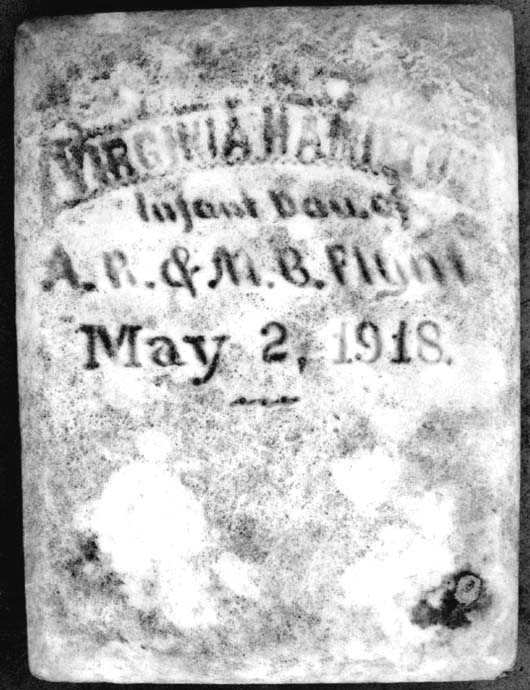 VIRGINIA HAMILTON
Infant Dau. of
A. R. & M. B.
May 2, 1918.